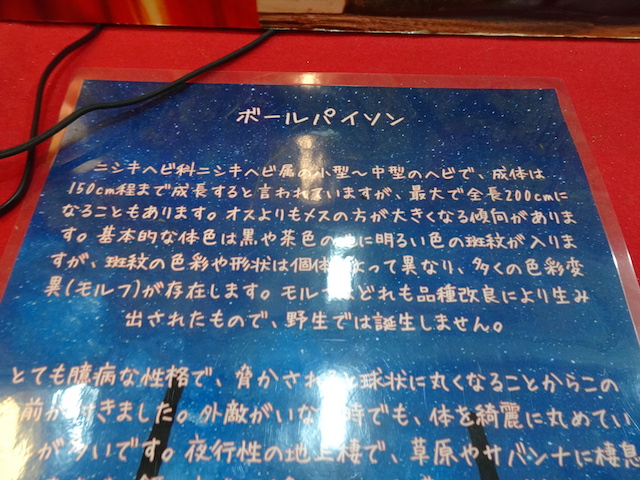 ボールパイソン
ニシキヘビ科ニシキヘビ属の小型～中型のヘビで、成体は
150cm程まで成長すると言われていますが、最大で全長200cmに
なることもあります。オスよりもメスの方が大きくなる傾向がありま
す。基本的な体色は黒や茶色の地に明るい色の斑紋が入りま
すが、斑紋の色彩や形状は個体 よって異なり、多くの色彩変
異(モルフ)が存在します。モル どれも品種改良により生み
出されたもので、野生では誕生しません。
とても臆病な性格で、脅かされ と球状に丸くなることからこの
前が きました。外敵がいな 時でも、体を綺麗に丸めてい
が多いです。夜行性の地上棲で、草原やサバンナに棲息